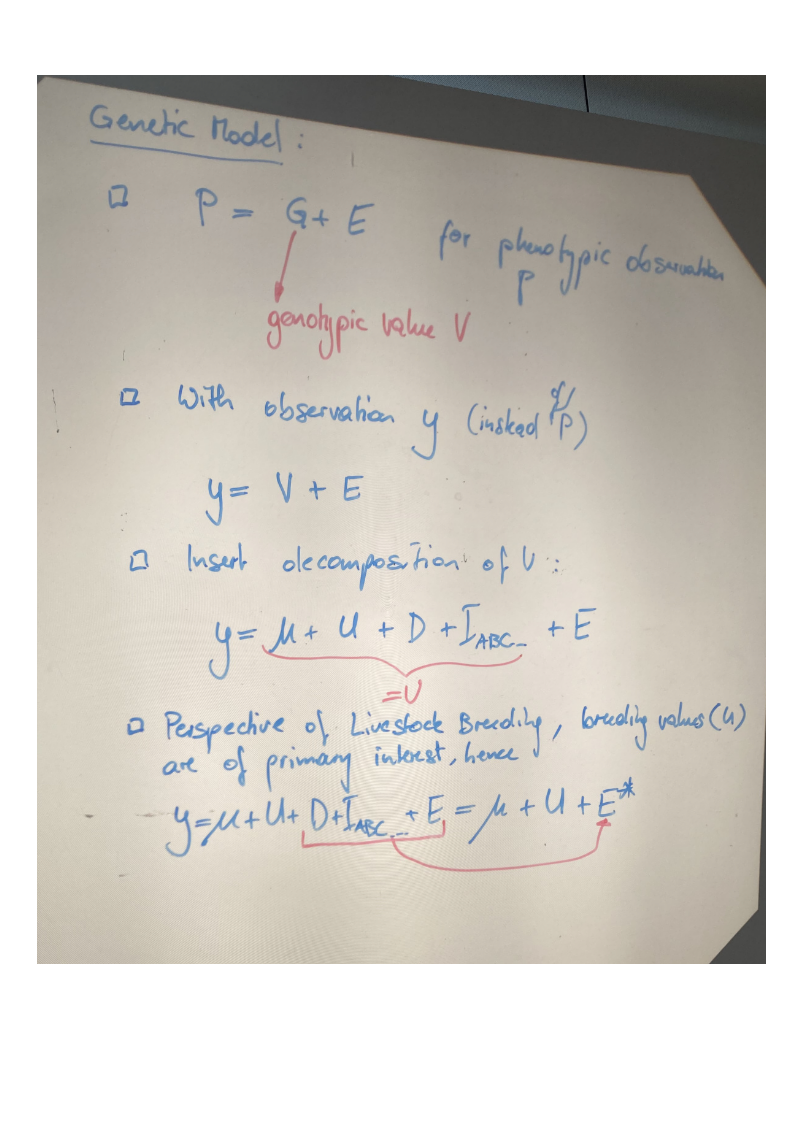 Genetic Model :
□ P = G + E for phenotypic observation
P
genotypic value V
□ With observation y (instead of P)
y = V + E
□ Insert decomposition of V :
y = μ + U + D + I_ABC... + E
= V
□ Perspective of Livestock Breeding, breeding values (U)
are of primary interest, hence
y = μ + U + D + I_ABC... + E = μ + U + E*